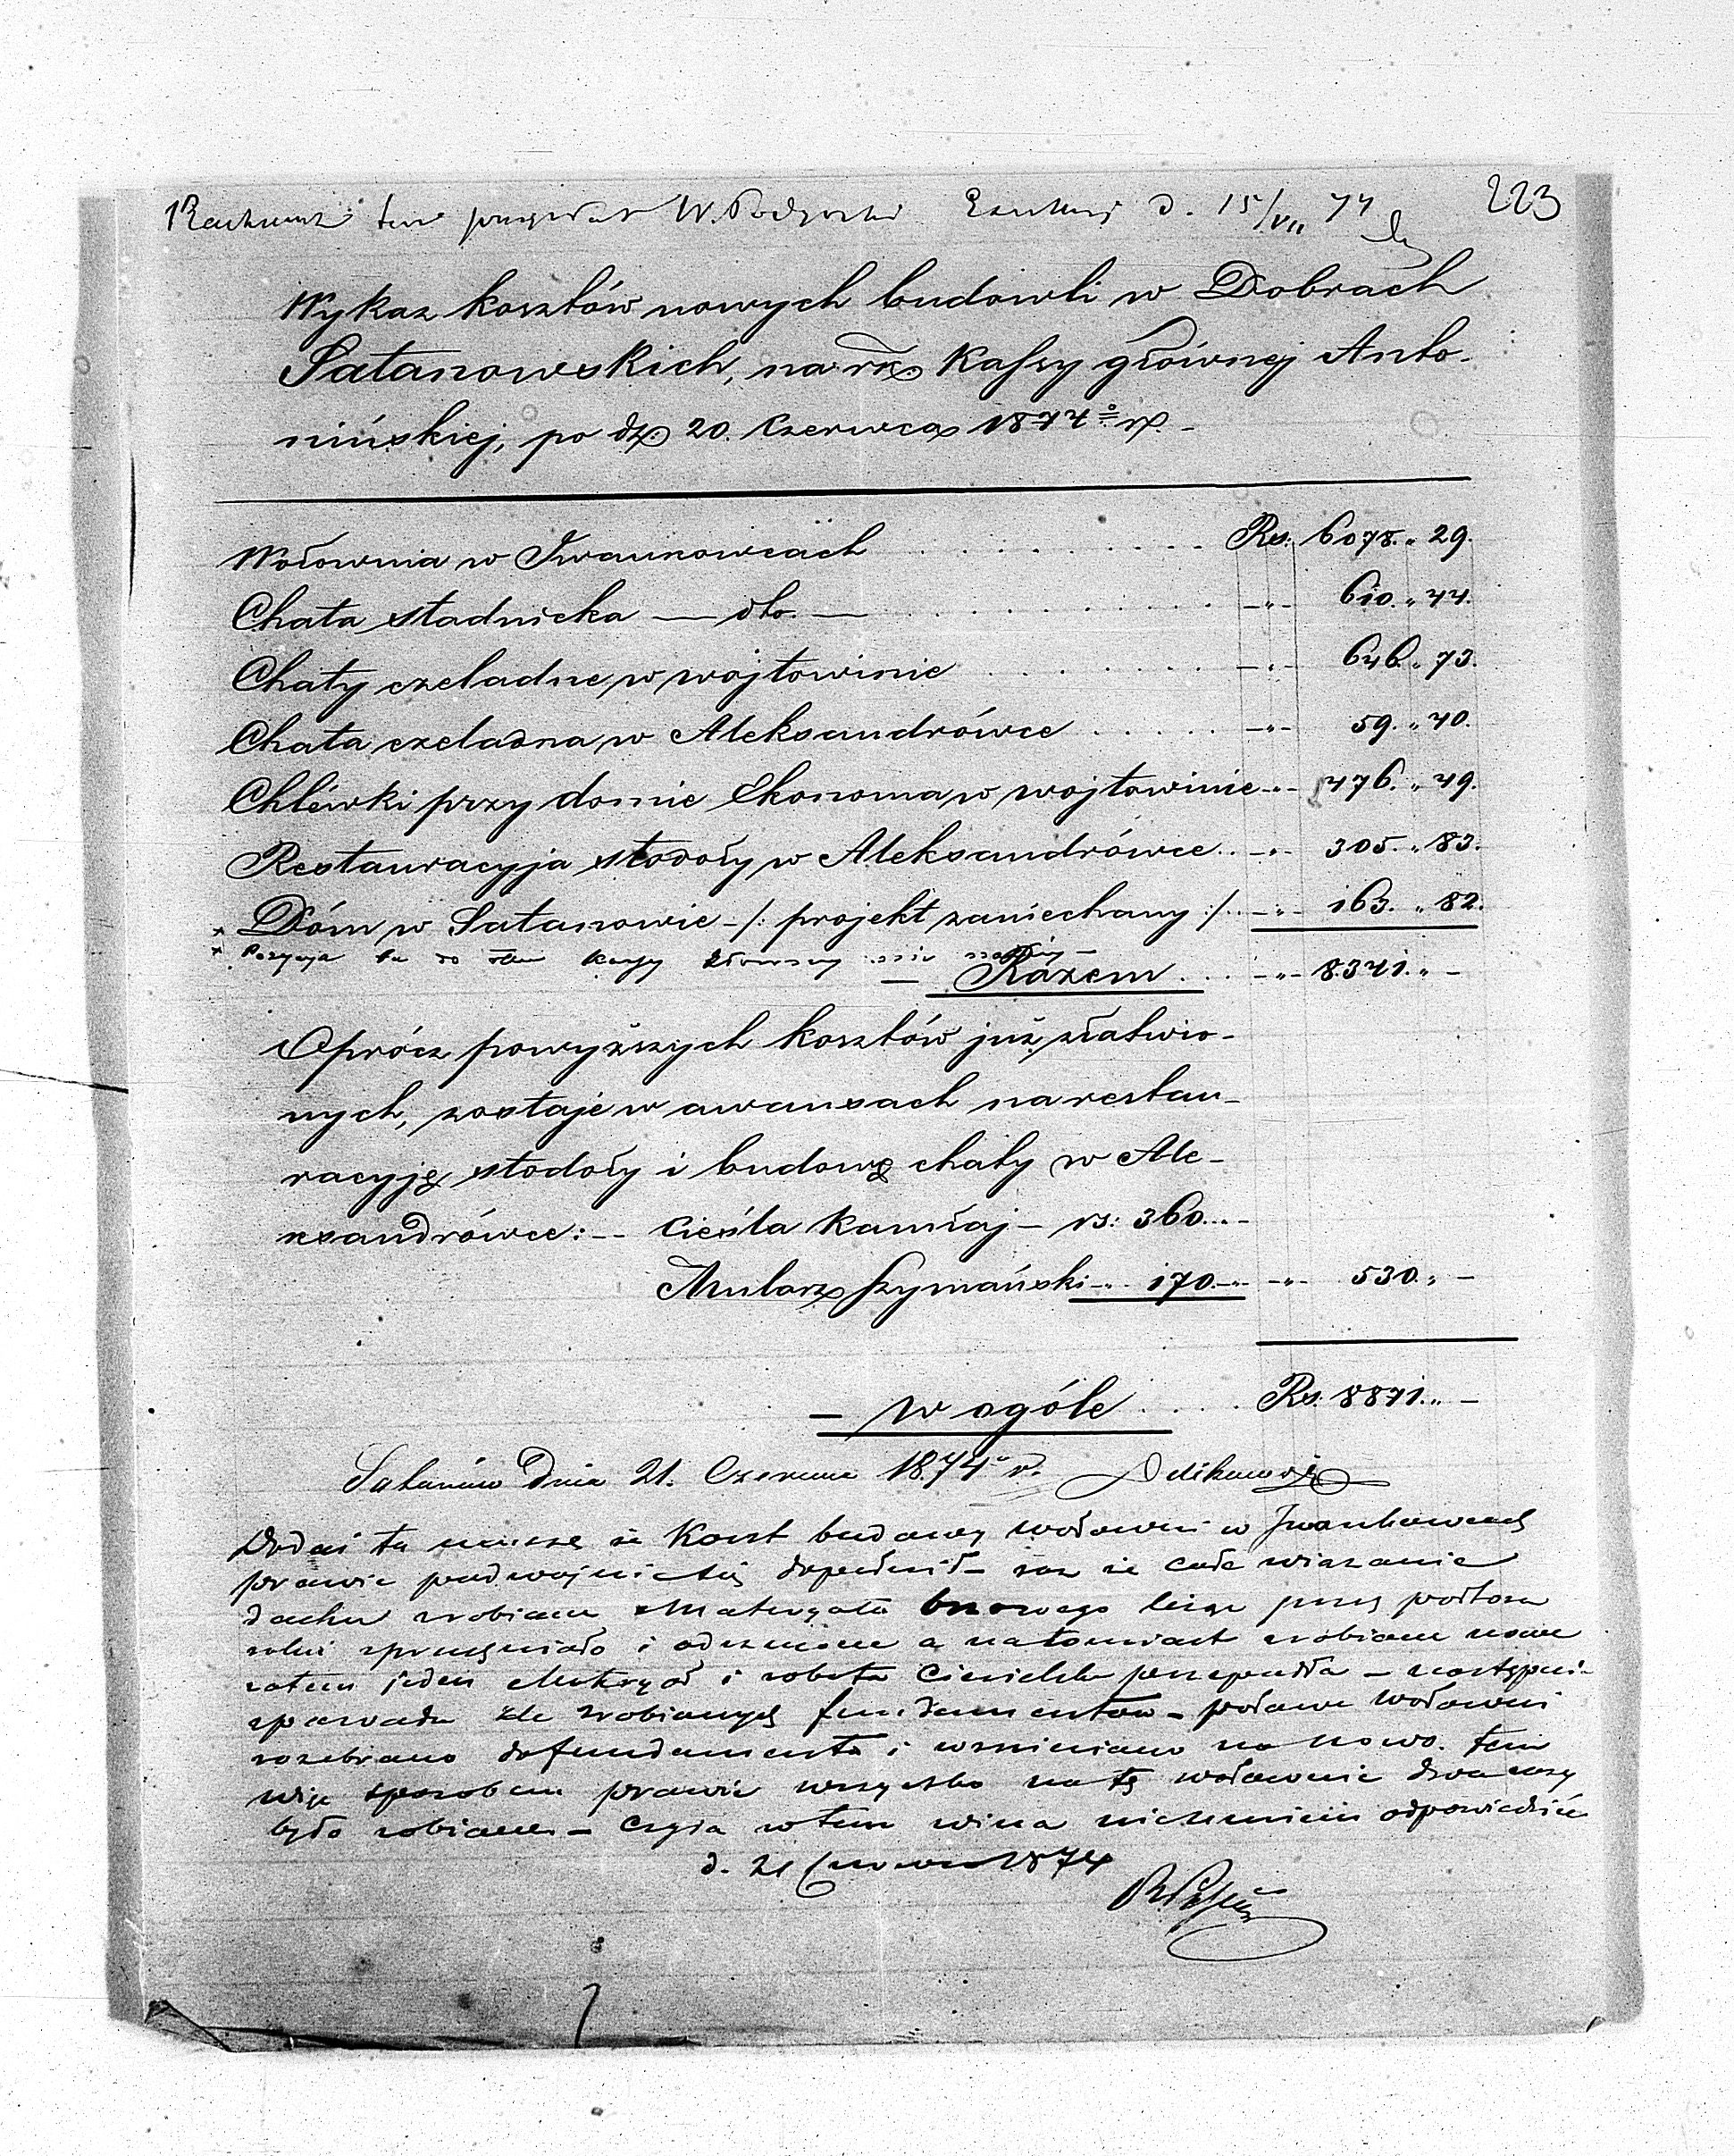 Rachunek ten przysłał W. 15/VII 74 223
Wykaz kosztów nowych budowli w Dobrach
Satanowskich, na rk Kassy głównej Anto-
nińskiej, po dz. 20. Czerwca 1874º r.-
Wołownia w Iwankowcach . . . . . . . . . . Rs. 6078. „ 29.
Chata stadnicka — dto. — . . . . . . . . . . -„- 610. „ 44.
Chaty czeladne w wojtowinie . . . . . . . . -„- 646. „ 73.
Chata czeladna w Aleksandrówce . . . . . -„- 59. „ 40.
Chléwki przy domie Ekonoma w wojtowinie -„- 476. „ 49.
Restauracyja stodoły w Aleksandrówce . . -„- 305. „ 83.
× Dóm w Satanowie -/: projekt zaniechany :/. . -„- 163. „ 82.
× Pozycya ta do Kassy Głównej nie należy -
— Razem . . . -„- 8341. „ -
Oprócz powyższych kosztów już załatwio-
nych, zostaje w awansach na restau-
racyję stodoły i budowę chaty w Ale-
ksandrówce: -- Cieśla Kamłaj - rs: 360. „ -
Mularz Szymański -„- 170. -„- -„- 530. „ -
— W ogóle . . . . Rs. 8871. „ -
Satanów Dnia 21. Czerwca 1874º r.
Dodać tu muszę że Koszt budowy wołowni w Iwankowcach
prawie podwójnie się dopełnił - raz że całe wiązanie
dachu zrobione z Materyału leżąc przez
i a natomiast zrobione nowe
zatem jeden Materyał i robota Ciesielska przepadła - następnie
z powodu źle zrobionych fundamentów - połowę wołowni
rozebrano do fundamentu i wzniesiono na nowo. tym
więc sposobem prawie wszystko na tę wołownię dwa razy
było robione - Czyja w tem wina nie umiem odpowiedzieć
d. 21 Czerwca 1874